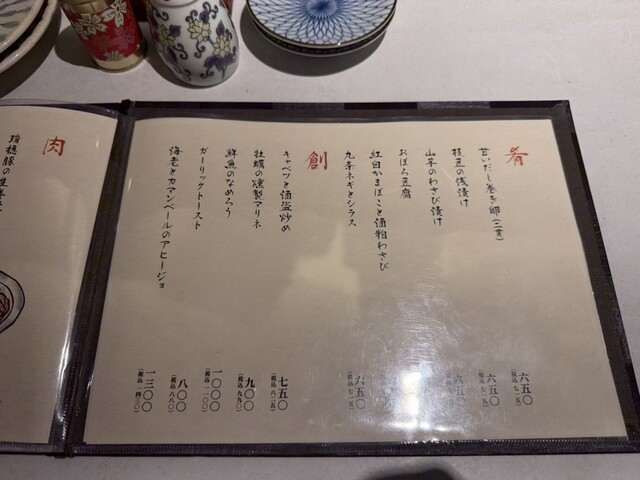 肴
甘いだし巻き卵(二貫)
六五〇
(税込 七一五)
枝豆の浅漬け
六五〇
(税込 七一五)
山芋のわさび漬け
六五〇
おぼろ豆腐
紅白かまぼこと酒粕わさび
九条ネギとシラス
六五〇
(税込 七一五)
創
キャベツと酒盗炒め
七五〇
(税込 八二五)
牡蠣の燻製マリネ
九〇〇
(税込 九九〇)
鮮魚のなめろう
一〇〇〇
(税込 一一〇〇)
ガーリックトースト
八〇〇
(税込 八八〇)
海老とカマンベールのアヒージョ
一三〇〇
(税込 一四三〇)
肉
瑞穂豚の